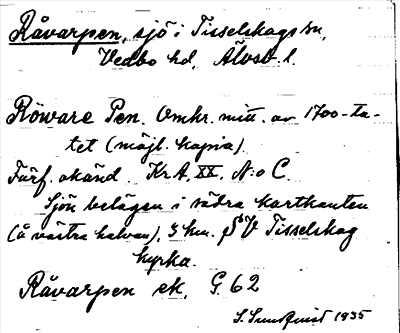 Råvarpen, sjö i Tisselskogs sn,
Vedbo hd, Älvsb. l.
Röware Pen. Omkr. mitt. av 1700-ta-
let (möjl. kopia).
Förf. okänd. Kr A, XX, N:o C.
Sjön belägen i södra kartkanten
(å västra halvan), 3 km. SV Tisselskog
kyrka.
Råvarpen ek. G. 62
S. Sundqvist 1935